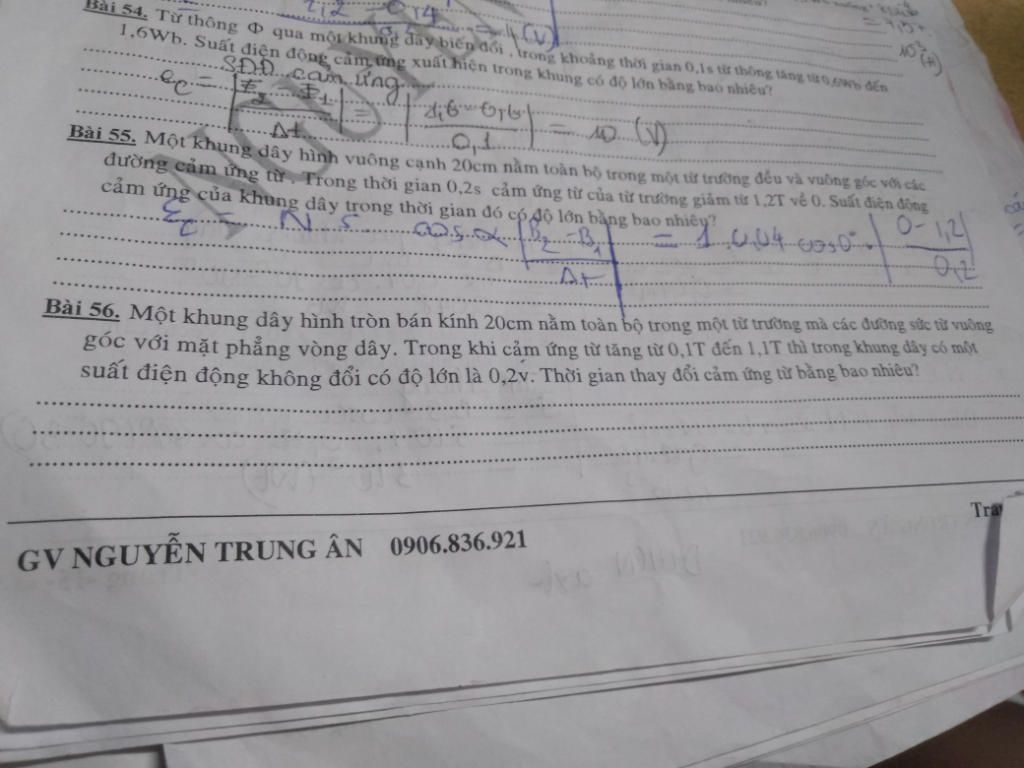 1,2 - 0,4
= 4 (V)
10³ (A)
Bài 54. Từ thông Φ qua một khung dây biến đổi , trong khoảng thời gian 0,1s từ thông tăng từ 0,6Wb đến
1,6Wb. Suất điện động cảm ứng xuất hiện trong khung có độ lớn bằng bao nhiêu?
SĐĐ cảm ứng
e_C = |Φ₂ - Φ₁ / Δt| = |1,6 - 0,6 / 0,1| = 10 (V)
Bài 55. Một khung dây hình vuông cạnh 20cm nằm toàn bộ trong một từ trường đều và vuông góc với các
đường cảm ứng từ . Trong thời gian 0,2s cảm ứng từ của từ trường giảm từ 1,2T về 0. Suất điện động
cảm ứng của khung dây trong thời gian đó có độ lớn bằng bao nhiêu?
Ec = N. S cos α |B₂ - B₁ / Δt| = 1.0,04 cos0° . |0 - 1,2 / 0,2|
Bài 56. Một khung dây hình tròn bán kính 20cm nằm toàn bộ trong một từ trường mà các đường sức từ vuông
góc với mặt phẳng vòng dây. Trong khi cảm ứng từ tăng từ 0,1T đến 1,1T thì trong khung dây có một
suất điện động không đổi có độ lớn là 0,2v. Thời gian thay đổi cảm ứng từ bằng bao nhiêu?
GV NGUYỄN TRUNG ÂN 0906.836.921